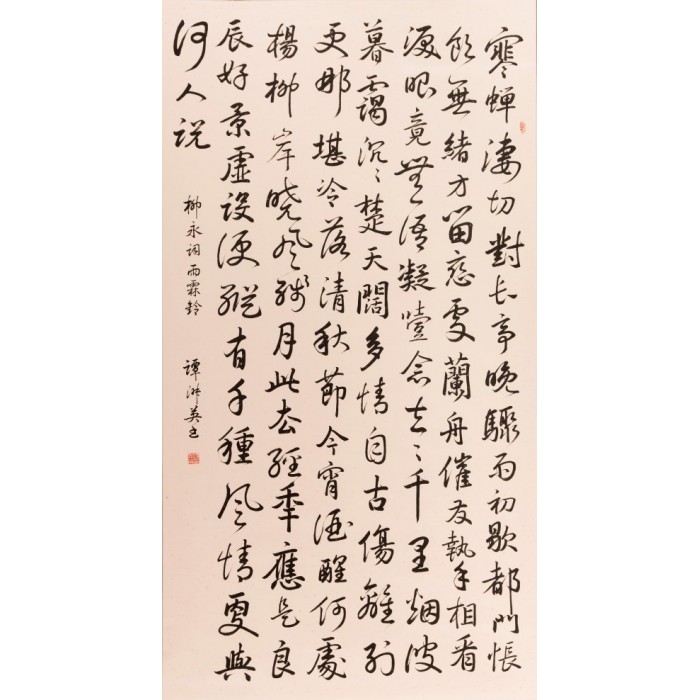 寒蟬淒切對長亭晚驟雨初歇都門悵
飲無緒方留戀處蘭舟催發執手相看
淚眼竟無語凝噎念去〻千里烟波
暮靄沉〻楚天闊多情自古傷離別
更那堪冷落清秋節今宵酒醒何處
楊柳岸曉風殘月此去經年應是良
辰好景虛設便縱有千種風情更與
何人説
柳永詞雨霖鈴 譚英书